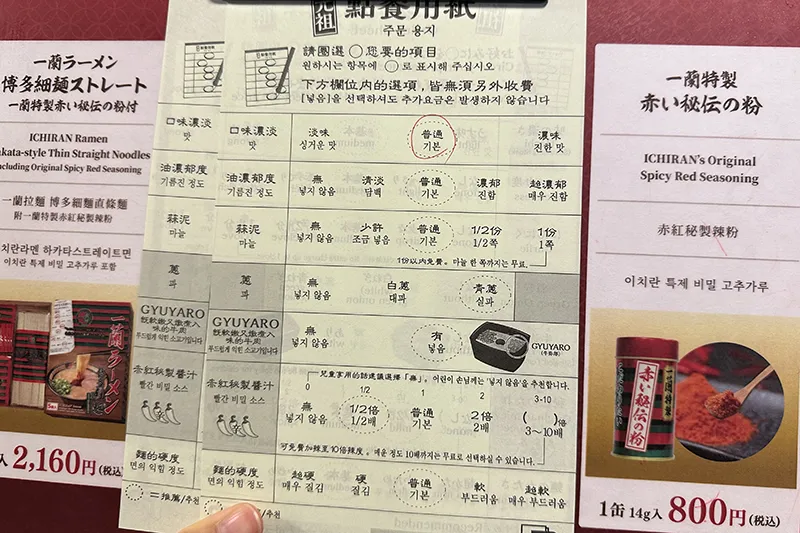 一蘭ラーメン
博多細麺ストレート
一蘭特製赤い秘伝の粉付
ICHIRAN Ramen
kata-style Thin Straight Noodles
ncluding Original Spicy Red Seasoning
一蘭拉麵 博多細麵直條麵
附一蘭特製赤紅秘製辣粉
치란라멘 하카타스트레이트면
이치란 특제 비밀 고추가루 포함
一蘭ラーメン
入 2,160円(税込)
元祖 點餐用紙
주문 용지
請圈選○您要的項目
원하시는 항목에 ○로 표시해 주십시오
下方欄位内的選項，皆無須另外收費
[넣음]을 선택하셔도 추가요금은 발생하지 않습니다
口味濃淡 淡味 普通 濃味
맛 싱거운 맛 기본 진한 맛
油濃郁度 無 清淡 普通 濃郁 超濃郁
기름진 정도 넣지 않음 담백 기본 진함 매우 진함
蒜泥 無 少許 普通 1/2份 1份
마늘 넣지 않음 조금 넣음 기본 1/2쪽 1쪽
1份以內免費。마늘 한 쪽까지는 무료.
蔥 無 白蔥 青蔥
파 넣지 않음 대파 실파
GYUYARO 無 有 GYUYARO
既軟嫩又燉煮入味的牛肉 넣지 않음 넣음
부드럽게 익힌 소고기입니다
兒童食用的話建議選擇「無」。어린이 손님께는 '넣지 않음'을 추천합니다.
赤紅秘製醬汁 0 1/2 1 2 3-10
빨간 비밀 소스 無 1/2倍 普通 2倍 ( )倍
넣지 않음 1/2배 기본 2배 3～10배
可免費加辣至10倍辣度。매운 정도 10배까지는 무료로 선택하실 수 있습니다.
麵的硬度 超硬 硬 普通 軟 超軟
면의 익힘 정도 매우 질김 질김 기본 부드러움 매우 부드러움
=推薦/추천
口味濃淡
맛
油濃郁度
기름진 정도
蒜泥
마늘
蔥
파
GYUYARO
既軟嫩又燉煮入味的牛肉
부드럽게 익힌 소고기입니다
赤紅秘製醬汁
빨간 비밀 소스
麵的硬度
면의 익힘 정도
=推薦/추천
一蘭特製
赤い秘伝の粉
ICHIRAN's Original
Spicy Red Seasoning
赤紅秘製辣粉
이치란 특제 비밀 고추가루
一蘭特製
赤い秘伝の粉
1缶 14g入 800円(税込)